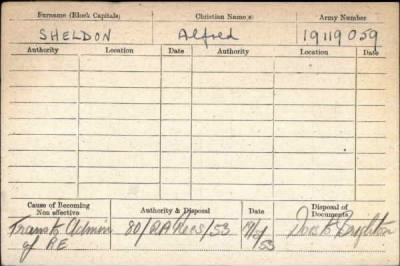 Surname (Block Capitals) Christian Name(s) Army Number
SHELDON Alfred 19119059
Authority Location Date Authority Location Date
Cause of Becoming Non effective Authority & Disposal Date Disposal of Documents
Trans to Admin 80/RA Recs/53 Docs to Brighton
of RE 53